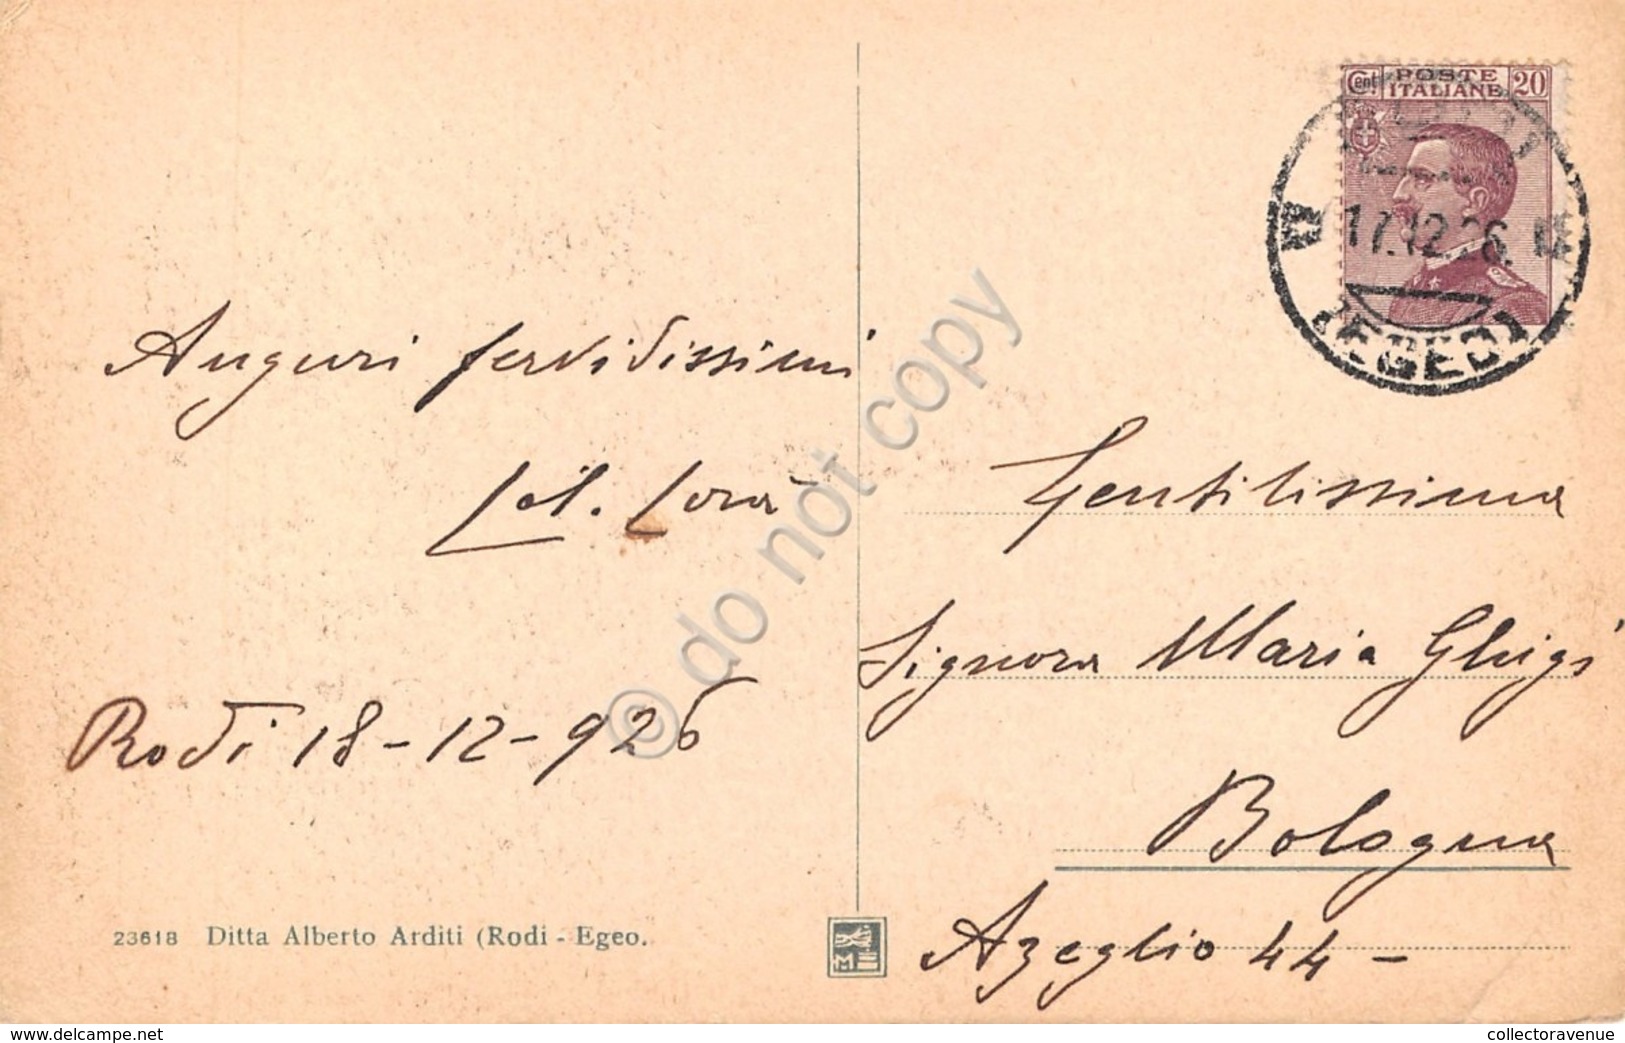 Cent. POSTE ITALIANE 20
17.12.26.
(EGEO)
Auguri fervidissimi
Rodi 18-12-926
Gentilissima
Signora Maria Ghigi
Bologna
Azeglio 44-
23618 Ditta Alberto Arditi (Rodi - Egeo.
© do not copy
www.delcampe.net
collectoravenue